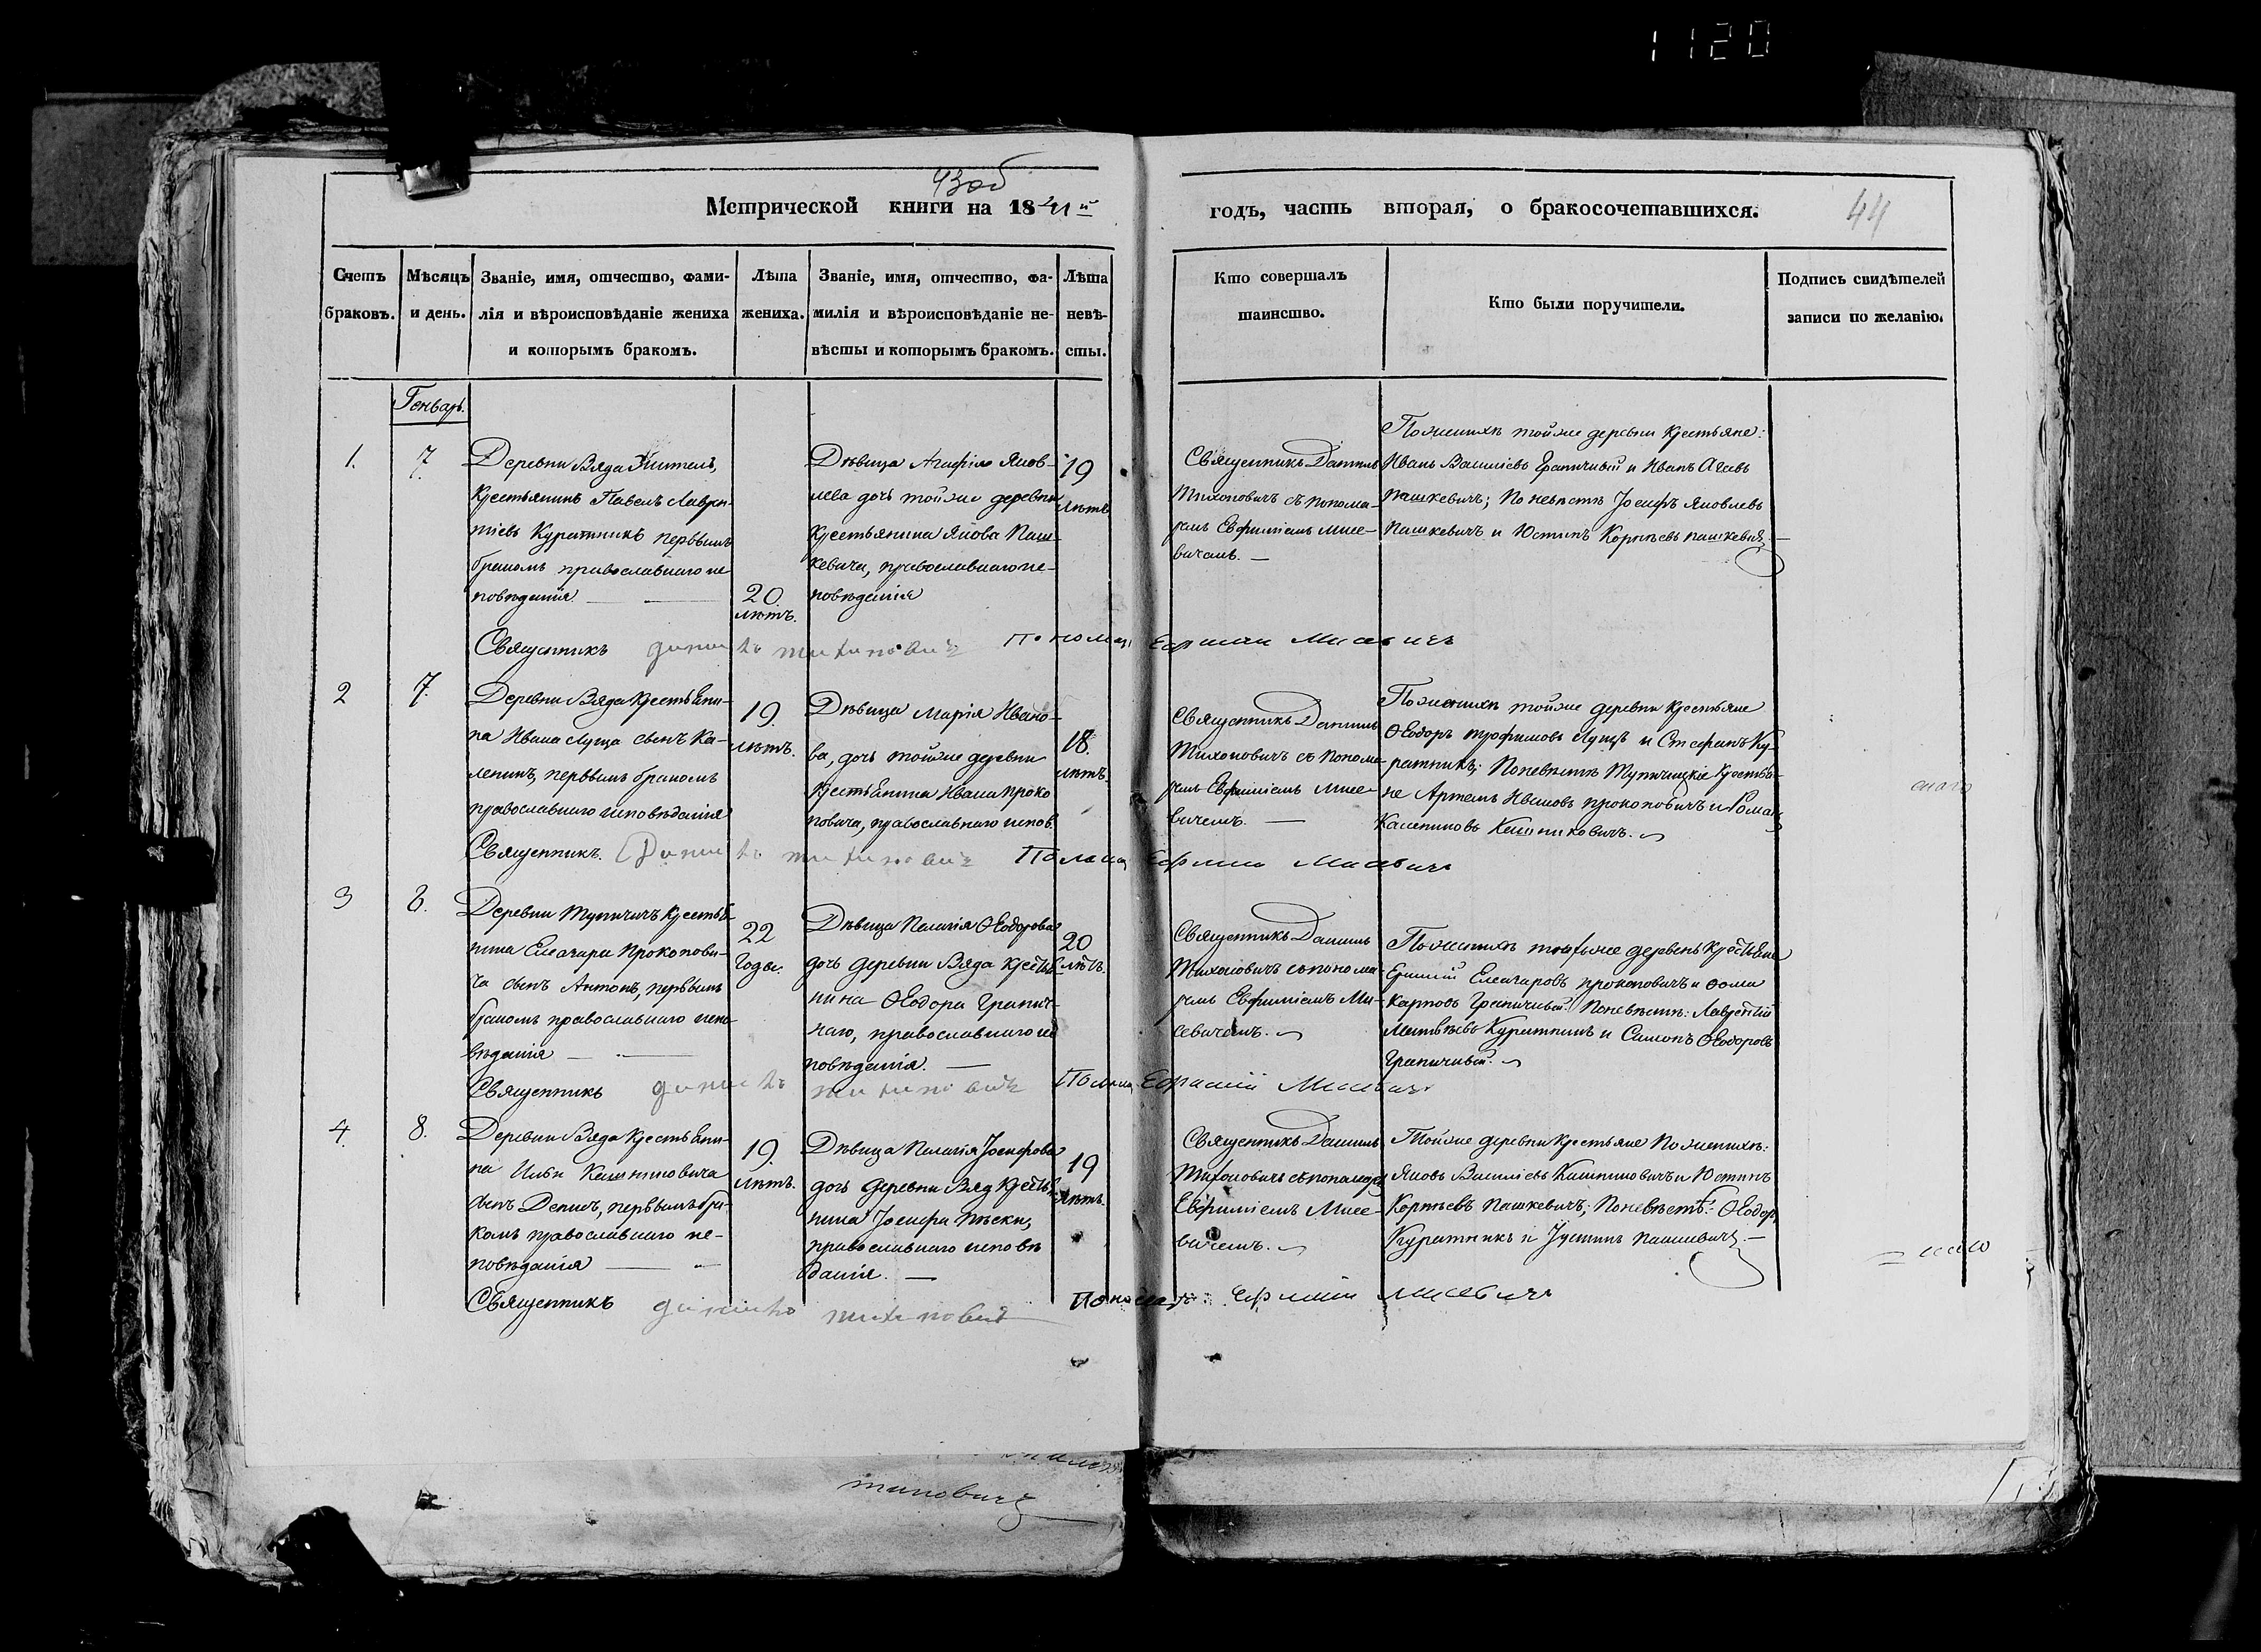 1120
43 об
Метрической книги на 1841й годъ, часть вторая, о бракосочетавшихся.
44
Счетъ браковъ.
Мѣсяцъ и день.
Званіе, имя, отчество, фами-
лія и вѣроисповѣданіе жениха
и которымъ бракомъ.
Лѣта
жениха.
Званіе, имя, отчество, фа-
милія и вѣроисповѣданіе не-
вѣсты и которымъ бракомъ.
Лѣта
невѣ-
сты.
Кто совершалъ
таинство.
Кто были поручители.
Подпись свидѣтелей
записи по желанію.
Генварь.
1.
7
Деревни Вяда Житель,
Крестьянинъ Павелъ Лаврен-
тіевъ Куратникъ первымъ
бракомъ православнаго ис
повѣданія
20
лѣтъ.
Дѣвица Агафія Яков-
лева дочь тойже деревни
Крестьянина Якова Паш-
кевича, православнаго ис-
повѣданія
19
лѣтъ
Священникъ Даніилъ
Тихоновичъ съ понома-
ремъ Евфиміемъ Мисе-
вичемъ. —
Пожених тойже деревни Крестьяне:
Иванъ Василіевъ Граничный и Иванъ
Пашкевичъ; По невѣстѣ Іосифъ Яковлевъ
Пашкевичъ и Юстинъ Корнѣевъ пашкевич —
Священникъ Данило Тихиновичъ Пономарь Ефимій Мисевичъ
2
7.
Деревни Вяда Крестьяни-
на Ивана Луца сынъ Ка-
ленинъ, первымъ бракомъ
православнаго исповѣданія
19.
лѣтъ.
Дѣвица Марія Ивано-
ва, дочь тойже деревни
Крестьянина Ивана Проко
повича, православнаго испов.
18.
лѣтъ.
Священникъ Даніилъ
Тихоновичъ съ понома-
ремъ Евфиміемъ Мисе-
вичемъ. —
Пожених тойже деревни Крестьяне
Ѳеодоръ трофимовъ Луцъ и Стефанъ Ку-
ратникъ; Поневѣстѣ Тупичицкіе Крестья-
не Артемъ Ивановъ прокоповичъ и Роман
Священникъ. Данило Тихиновичъ Ефимій Мисевичъ
3
8.
Деревни Тупичичъ Крестья
нина Елеазара Прокопови-
ча сынъ Антонъ, первымъ
бракомъ православнаго испо
вѣданія —
22
Годы.
Дѣвица Пелагія Ѳеодорова
дочь деревни Вяда Крестья
нина Ѳеодора Гранич-
наго, православнаго ис
повѣданія. —
20
лѣтъ.
Священникъ Даніилъ
Тихоновичъ съ понома-
ремъ Евфиміемъ Ми-
севичемъ.
Пожених деревень Крестьяне
Елеазаровъ прокоповичъ и Ѳома
Карповъ Граничный. Поневѣстѣ: Лаврентій
Матвѣевъ Куратникъ и Симонъ Ѳеодоровъ
Граничный.
Священникъ Данило Тихиновичъ Ефимій Мисевичъ
4.
8.
Деревни Вяда Крестьяни-
на Ильи
сынъ Денисъ, первымъ бра-
комъ православнаго ис-
повѣданія —
19.
лѣтъ.
Дѣвица Пелагія Іосифова
дочь деревни Вяд Крестья-
нина Іосифа
православнаго исповѣ
данія. —
19
лѣтъ.
Священникъ Даніилъ
Тихоновичъ съ пономаремъ
Евфиміемъ Мисе-
вичемъ.
Тойже деревни Крестьяне Пожених:
Яковъ Василіевъ и Юстинъ
Корнѣевъ Пашкевичъ; Поневѣстѣ: Ѳеодоръ
Куратникъ и Іустинъ Пашкевичъ. —
Священникъ Данило Тихиновичъ Пономарь Ефимій Мисевичъ